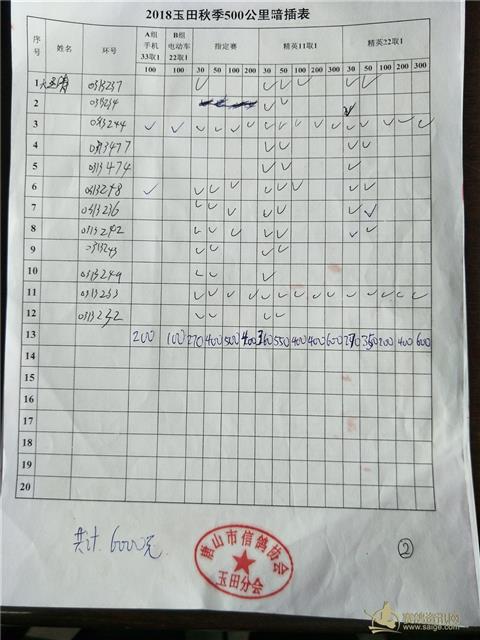 2018玉田秋季500公里暗插表
序号 姓名 环号 A组手机33取1 B组电动车22取1 指定赛 精英11取1 精英22取1
100 100 30 50 100 200 30 50 100 200 300 30 50 100 200 300
1 0313237 ✓ ✓ ✓ ✓ ✓ ✓
2 ✓ ✓ ✓
3 0313244 ✓ ✓ ✓ ✓ ✓ ✓ ✓ ✓ ✓ ✓ ✓ ✓ ✓ ✓ ✓ ✓
4 0313477 ✓ ✓ ✓ ✓
5 0313474 ✓ ✓ ✓
6 0313248 ✓ ✓ ✓ ✓ ✓ ✓ ✓ ✓ ✓
7 0313236 ✓ ✓ ✓ ✓ ✓ ✓ ✓
8 0313242 ✓ ✓ ✓ ✓ ✓ ✓ ✓
9 0313243 ✓ ✓ ✓ ✓
10 0313249 ✓ ✓ ✓
11 0313233 ✓ ✓ ✓ ✓ ✓ ✓ ✓ ✓ ✓ ✓ ✓ ✓ ✓ ✓
12 0313232 ✓ ✓ ✓ ✓
13 200 100 270 400 500 400 360 550 400 400 600 270 350 200 400 600
14
15
16
17
18
19
20
共计. 6000元
唐山市信鸽协会
玉田分会
②
赛鸽资讯网
www.saige.com